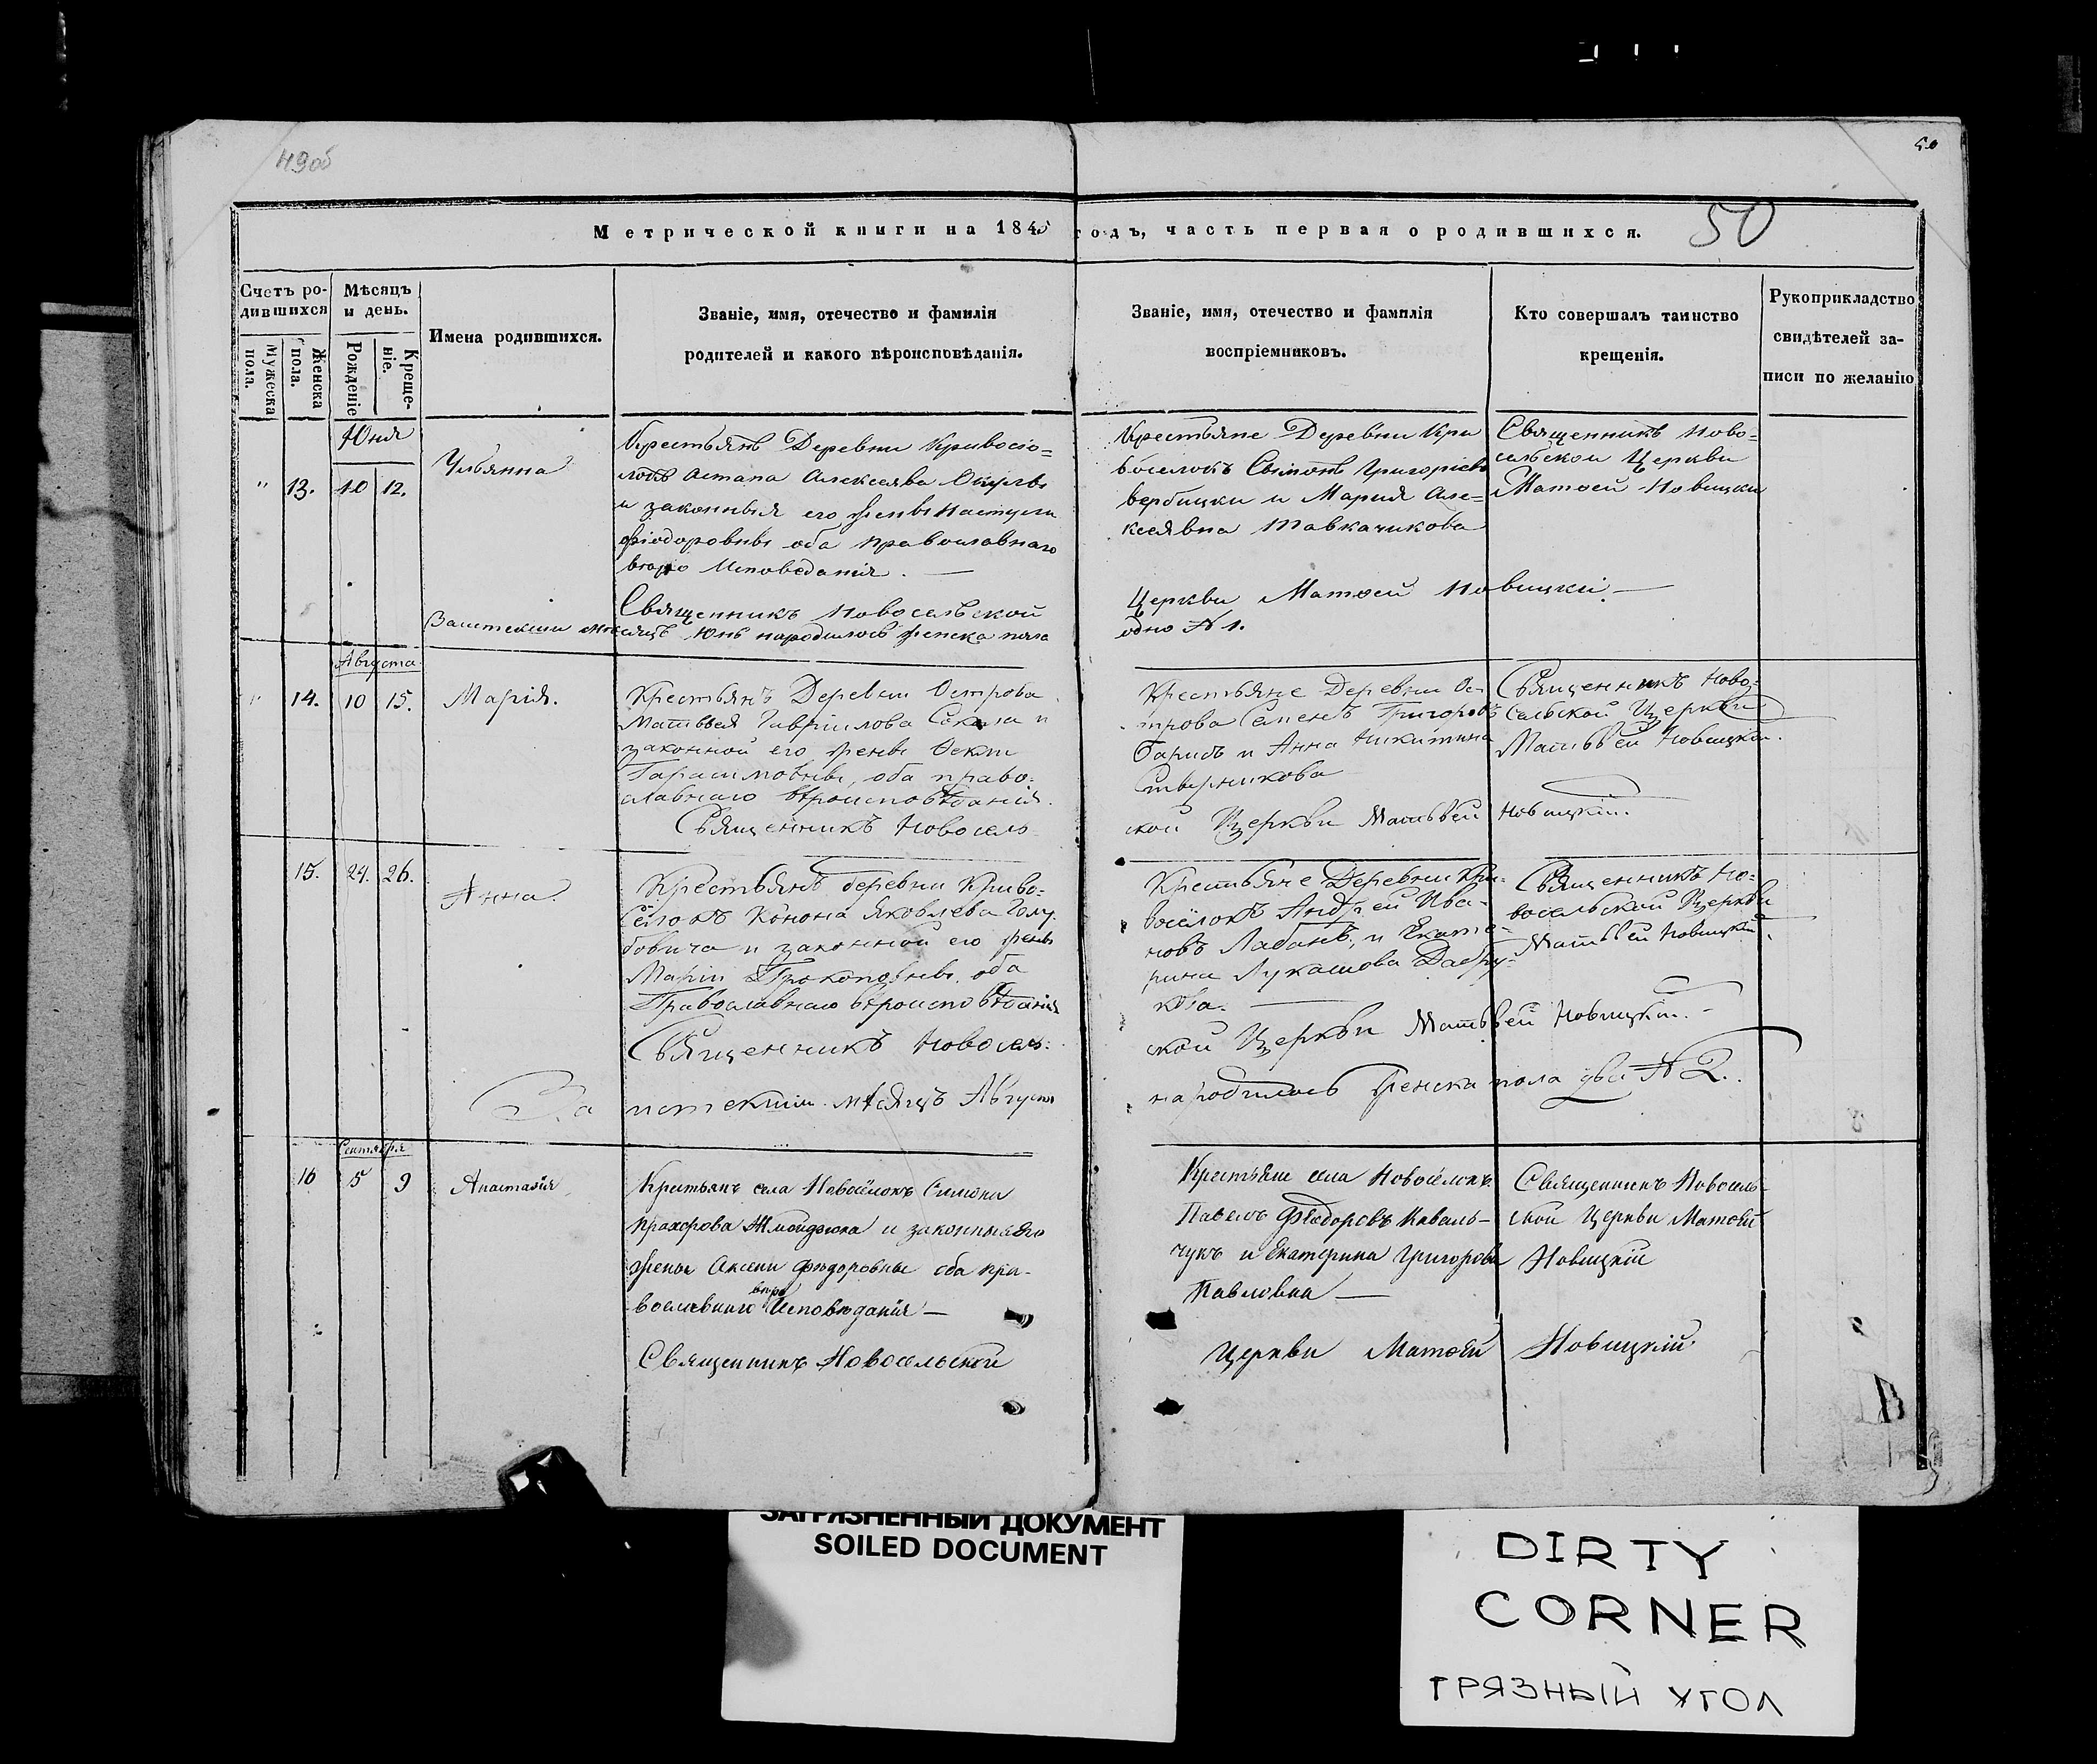 49об
50
Метрической книги на 1845 годъ, часть первая о родившихся.
50
Счетъ ро-
дившихся
Мужеска
пола.
Женска
пола.
Мѣсяцъ
и день.
Рожденіе
Креще-
ніе.
Имена родившихся.
Званіе, имя, отечество и фамилія
родителей и какого вѣроисповѣданія.
Званіе, имя, отечество и фамилія
воспріемниковъ.
Кто совершалъ таинство
крещенія.
Рукоприкладство
свидѣтелей за-
писи по желанію
Юня
" 13. 10 12.
Ульянна
Крестьянъ Деревни Кривосіо=
локъ Астапа Алексеява
и законныя его жены Настусіи
Фіодоровны оба православнаго
Исповеданія. —
Священникъ Новосельской
Крестьяне Деревни Кри
воселокъ Сымонъ Григоріевъ
вербицки и Мария Але-
ксеявна Тавкачикова
Церкви Матѳей Новицкій. —
Священникъ Ново=
сельской Церкви
Матѳей Новицки
Заистекши месяцъ Юнь народилось женска пола
одно № 1.
Августа
" 14. 10 15.
Марія.
Крестьянъ Деревни Острова
Матвѣя Гавріилова и
законной его жены
Гарасимовны, оба право-
славнаго вѣроисповѣданія.
Священникъ Новосель-
Крестьяне Деревни Ос-
трова Семенъ Григоровъ
и Анна Никитина
ской Церкви Матвѣей Новицкій.
Священникъ Ново=
сельской Церкви
Матвѣей Новицкій.
15. 24. 26.
Анна.
Крестьянъ деревни Криво-
сёлокъ Конона Яковлева Голу-
бовича и законной его жены
Маріи Прокоповны, оба
Православнаго вѣроисповѣданія
Священникъ Новосель-
Крестьяне Деревни Кри-
восёлокъ Андрей Ива-
новъ Лабанъ, и Екате-
рина Лукашова
кова. —
ской Церкви Матвѣей Новицкій. -
Священникъ Но-
восельской Церкви
Матвѣей Новицкій.
За истекшій мѣсяцъ Августъ
народилось женска пола два № 2.
Сентября
16 5 9
Анастасія
Крестьянъ села Новосёлокъ Симона
Прохорова Жмойдзюка и законныя его
жены Аксени Фёдоровны оба пра-
вославнаго вѣро Исповѣданія —
Священникъ Новосельской
Крестьяне села Новосёлокъ
Павелъ Фёдоровъ Коваль-
чукъ и Екатерина Григорова
Павловна —
Церкви Матѳей Новицкій
Священникъ Новосель-
ской Церкви Матѳей
Новицкій
ЗАГРЯЗНЕННЫЙ ДОКУМЕНТ
SOILED DOCUMENT
DIRTY
CORNER
ГРЯЗНЫЙ УГОЛ